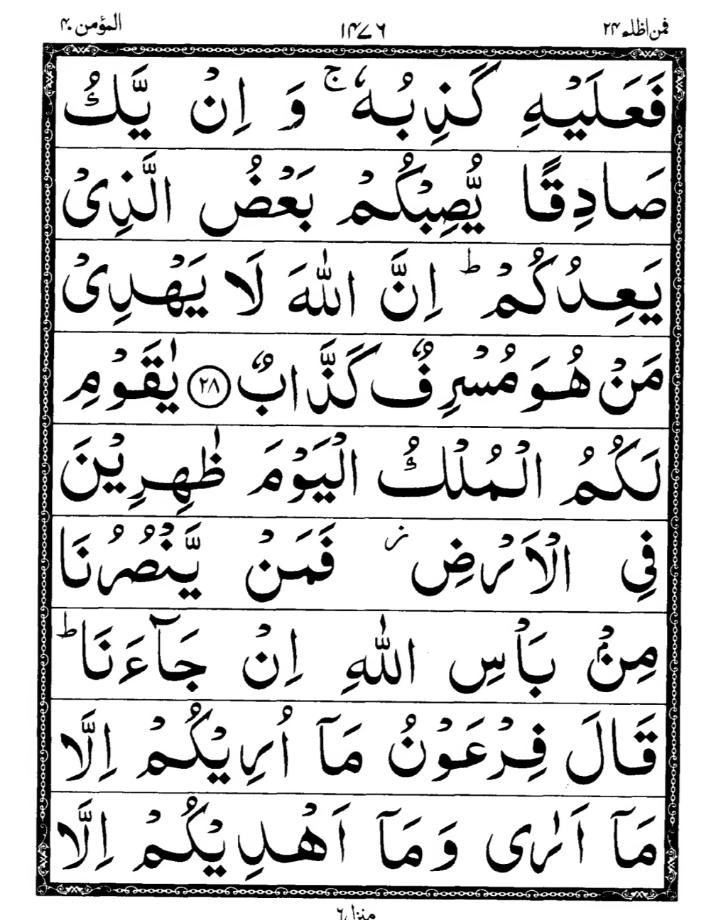 المؤمن ٤٠ ١٤٧٦ فمن اظلم ٢٤
فَعَلَيْهِ كَذِبُهٗ ۚ وَ اِنْ يَّكُ
صَادِقًا يُّصِبْكُمْ بَعْضُ الَّذِىْ
يَعِدُكُمْ ؕ اِنَّ اللّٰهَ لَا يَهْدِىْ
مَنْ هُوَ مُسْرِفٌ كَذَّابٌ ۝٢٨ يٰقَوْمِ
لَكُمُ الْمُلْكُ الْيَوْمَ ظٰهِرِيْنَ
فِى الْاَرْضِ ز فَمَنْ يَّنْصُرُنَا
مِنْۢ بَاْسِ اللّٰهِ اِنْ جَآءَنَا ؕ
قَالَ فِرْعَوْنُ مَآ اُرِيْكُمْ اِلَّا
مَآ اَرٰى وَمَآ اَهْدِيْكُمْ اِلَّا
منزل ٦